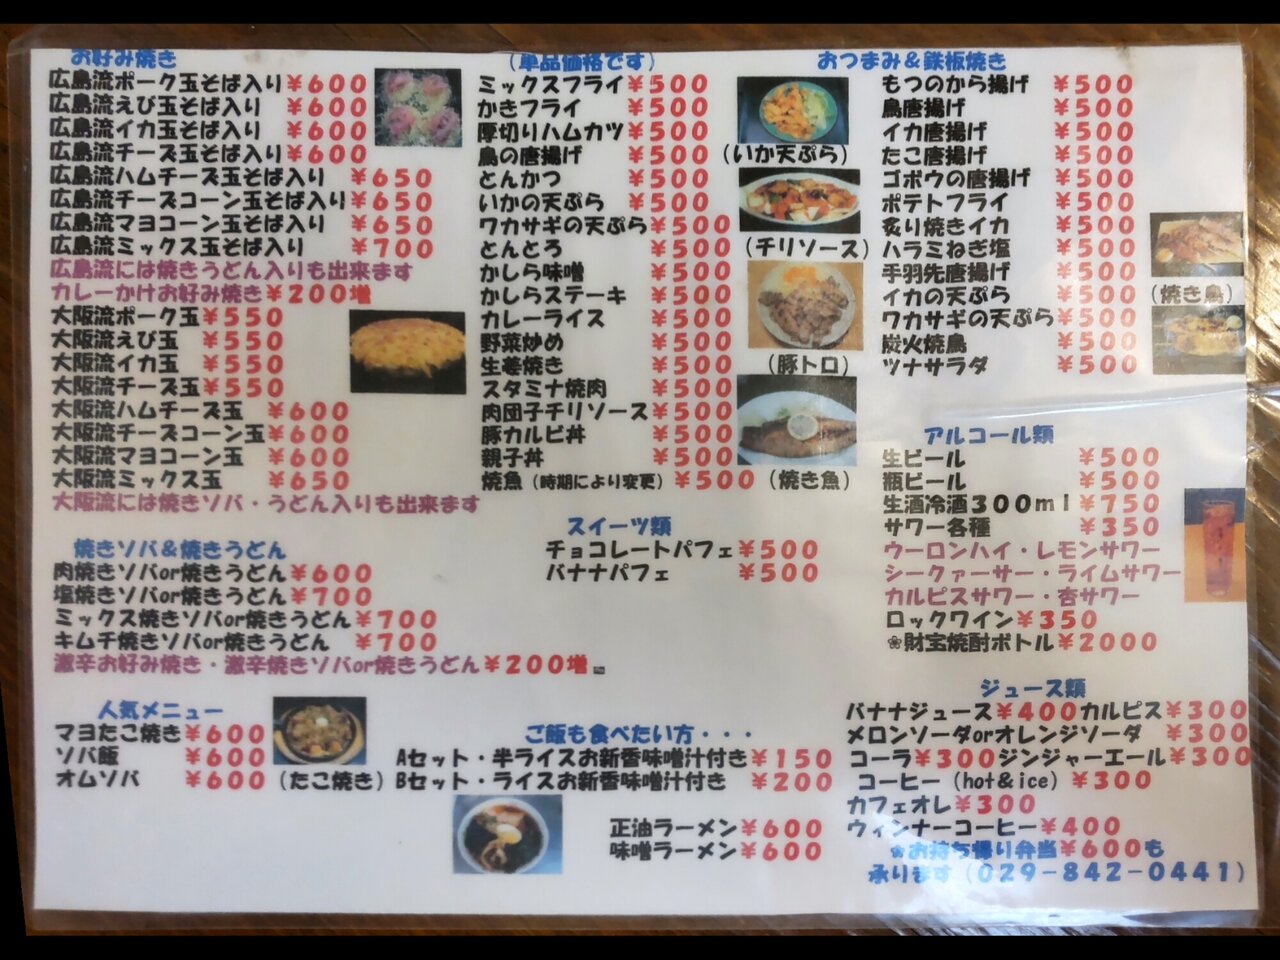 お好み焼き
広島流ポーク玉そば入り¥600
広島流えび玉そば入り ¥600
広島流イカ玉そば入り ¥600
広島流チーズ玉そば入り¥600
広島流ハムチーズ玉そば入り ¥650
広島流チーズコーン玉そば入り¥650
広島流マヨコーン玉そば入り ¥650
広島流ミックス玉そば入り ¥700
広島流には焼きうどん入りも出来ます
カレーかけお好み焼き¥200増
大阪流ポーク玉¥550
大阪流えび玉 ¥550
大阪流イカ玉 ¥550
大阪流チーズ玉¥550
大阪流ハムチーズ玉 ¥600
大阪流チーズコーン玉¥600
大阪流マヨコーン玉 ¥600
大阪流ミックス玉 ¥650
大阪流には焼きソバ・うどん入りも出来ます
焼きソバ&焼きうどん
肉焼きソバor焼きうどん¥600
塩焼きソバor焼きうどん¥700
ミックス焼きソバor焼きうどん¥700
キムチ焼きソバor焼きうどん ¥700
激辛お好み焼き・激辛焼きソバor焼きうどん¥200増
人気メニュー
マヨたこ焼き¥600
ソバ飯 ¥600
オムソバ ¥600
(たこ焼き)
(単品価格です)
ミックスフライ¥500
かきフライ ¥500
厚切りハムカツ¥500
鳥の唐揚げ ¥500
とんかつ ¥500
いかの天ぷら ¥500
ワカサギの天ぷら¥500
とんとろ ¥500
かしら味噌 ¥500
かしらステーキ ¥500
カレーライス ¥500
野菜炒め ¥500
生姜焼き ¥500
スタミナ焼肉 ¥500
肉団子チリソース¥500
豚カルビ丼 ¥500
親子丼 ¥500
焼魚(時期により変更)¥500
(いか天ぷら)
(チリソース)
(豚トロ)
(焼き魚)
スイーツ類
チョコレートパフェ¥500
バナナパフェ ¥500
ご飯も食べたい方・・・
Aセット・半ライスお新香味噌汁付き¥150
Bセット・ライスお新香味噌汁付き ¥200
正油ラーメン¥600
味噌ラーメン¥600
おつまみ&鉄板焼き
もつのから揚げ ¥500
鳥唐揚げ ¥500
イカ唐揚げ ¥500
たこ唐揚げ ¥500
ゴボウの唐揚げ ¥500
ポテトフライ ¥500
炙り焼きイカ ¥500
ハラミねぎ塩 ¥500
手羽先唐揚げ ¥500
イカの天ぷら ¥500
ワカサギの天ぷら¥500
炭火焼鳥 ¥500
ツナサラダ ¥500
(焼き鳥)
アルコール類
生ビール ¥500
瓶ビール ¥500
生酒冷酒300ml¥750
サワー各種 ¥350
ウーロンハイ・レモンサワー
シークァーサー・ライムサワー
カルピスサワー・杏サワー
ロックワイン¥350
❀財宝焼酎ボトル¥2000
ジュース類
バナナジュース¥400カルピス¥300
メロンソーダorオレンジソーダ ¥300
コーラ¥300ジンジャーエール¥300
コーヒー(hot&ice)¥300
カフェオレ¥300
ウィンナーコーヒー¥400
❀お持ち帰り弁当¥600も
承ります(029-842-0441)